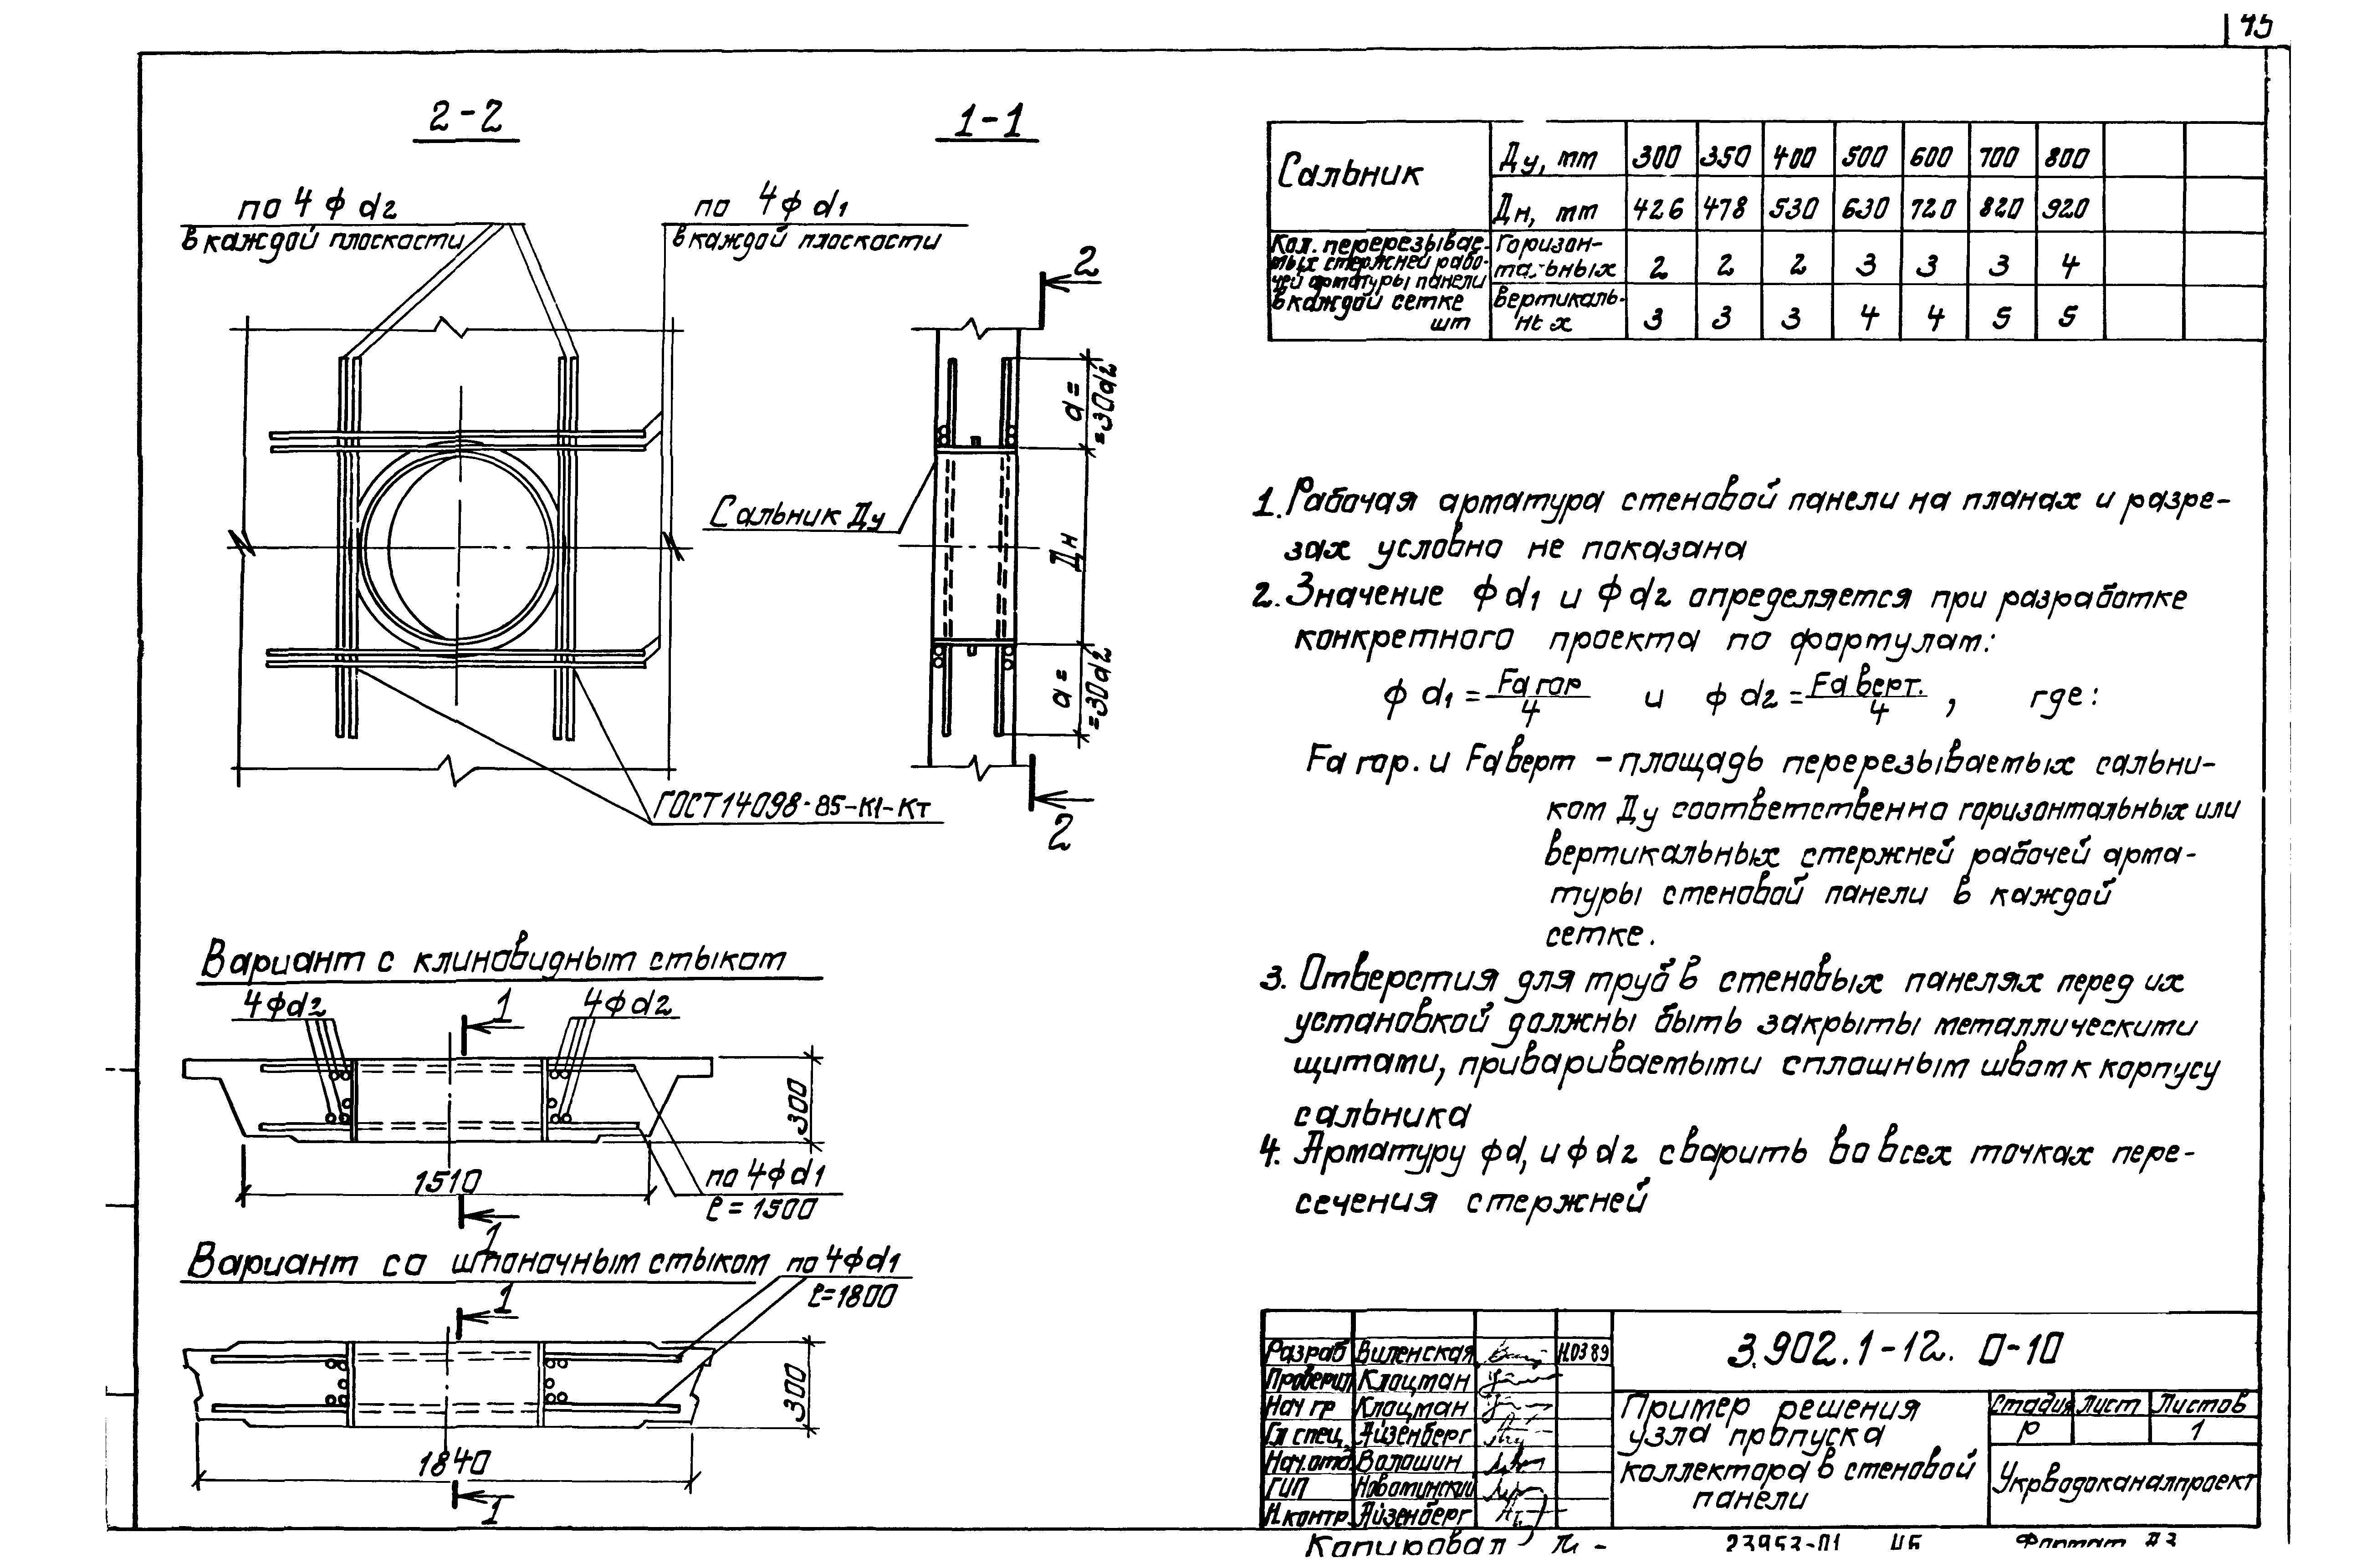 45
2-2
1-1
по 4 ф d2
в каждой плоскости
по 4 ф d1
в каждой плоскости
2
a =
=30d2
Сальник Ду
Дн
a =
=30d2
ГОСТ 14098-85-К1-Кт
2
Сальник Ду, мм 300 350 400 500 600 700 800
Дн, мм 426 478 530 630 720 820 920
Кол. перерезывае-
мых стержней рабо-
чей арматуры панели
в каждой сетке
шт
Горизон-
тальных 2 2 2 3 3 3 4
Вертикаль-
ных 3 3 3 4 4 5 5
1. Рабочая арматура стеновой панели на планах и разре-
зах условно не показана
2. Значение ф d1 и ф d2 определяется при разработке
конкретного проекта по формулам:
ф d1 = Fа гор / 4 и ф d2 = Fа верт. / 4 , где:
Fа гор. и Fа верт - площадь перерезываемых сальни-
ком Ду соответственно горизонтальных или
вертикальных стержней рабочей арма-
туры стеновой панели в каждой
сетке.
3. Отверстия для труб в стеновых панелях перед их
установкой должны быть закрыты металлическими
щитами, привариваемыми сплошным швом к корпусу
сальника
4. Арматуру фd1 и ф d2 сварить во всех точках пере-
сечения стержней
Вариант с клиновидным стыком
4фd2
1
4фd2
300
1510
по 4фd1
ℓ = 1500
1
Вариант со шпоночным стыком
по 4фd1
ℓ=1800
1
300
1840
1
Разраб Виленская
Проверил Клоцман
Нач гр Клоцман
Гл спец Айзенберг
Нач.отд Волошин
ГИП Новоминский
Н.контр. Айзенберг
3.902.1-12. 0-10
Пример решения
узла пропуска
коллектора в стеновой
панели
Стадия Лист Листов
Р 1
Укрводоканалпроект
Копировал
23953-01 46 Формат А3